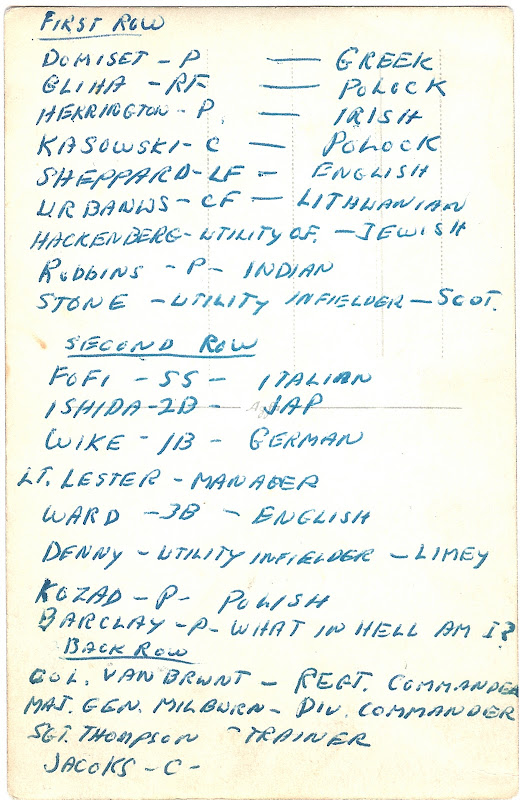 FIRST ROW
DOMISET - P — GREEK
GLIHA - RF — POLOCK
HERRINGTON - P. — IRISH
KASOWSKI - C — POLOCK
SHEPPARD - LF — ENGLISH
URBANUS - CF — LITHUANIAN
HACKENBERG - UTILITY OF. — JEWISH
ROBBINS - P - INDIAN
STONE - UTILITY INFIELDER — SCOT.
SECOND ROW
FOFI - SS - ITALIAN
ISHIDA - 2B - JAP
WIKE - 1B - GERMAN
LT. LESTER - MANAGER
WARD - 3B - ENGLISH
DENNY - UTILITY INFIELDER - LIMEY
KOZAD - P - POLISH
BARCLAY - P - WHAT IN HELL AM I?
BACK ROW
COL. VAN BRUNT - REGT. COMMANDER
MAJ. GEN. MILBURN - DIV. COMMANDER
SGT. THOMPSON - TRAINER
JACOKS - C -